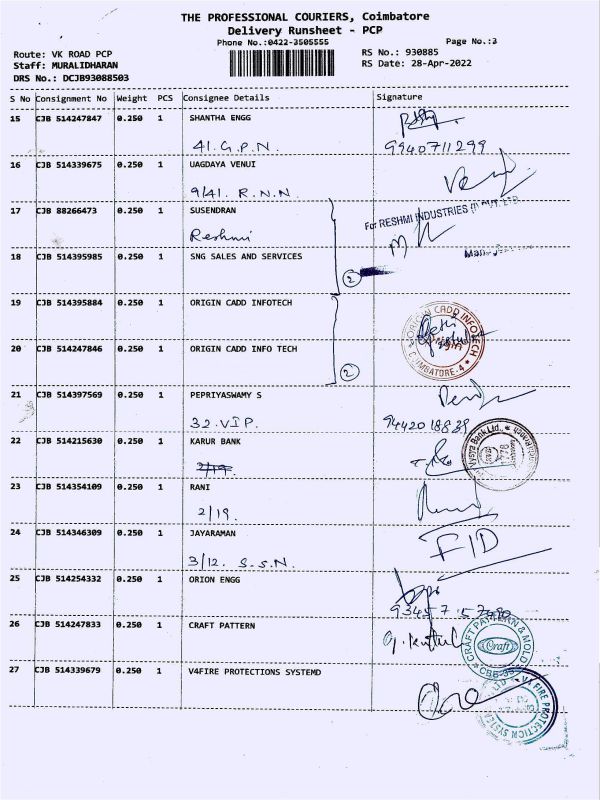 THE PROFESSIONAL COURIERS, Coimbatore
Delivery Runsheet - PCP
Phone No.:0422-3505555
Page No.:3
Route: VK ROAD PCP
RS No.: 930885
Staff: MURALIDHARAN
RS Date: 28-Apr-2022
DRS No.: DCJB93088503
S No Consignment No Weight PCS Consignee Details Signature
15 CJB 514247847 0.250 1 SHANTHA ENGG
41. G.P.N. 9940711299
16 CJB 514339675 0.250 1 UAGDAYA VENUI
9/41. R.N.N.
17 CJB 88266473 0.250 1 SUSENDRAN
Reshmi For RESHMI INDUSTRIES
18 CJB 514395985 0.250 1 SNG SALES AND SERVICES
2
19 CJB 514395884 0.250 1 ORIGIN CADD INFOTECH
ORIGIN CADD INFOTECH
COIMBATORE-4
20 CJB 514247846 0.250 1 ORIGIN CADD INFO TECH
2
21 CJB 514397569 0.250 1 PEPRIYASWAMY S
32. V.I.P. 9442018839
22 CJB 514215630 0.250 1 KARUR BANK
Vysya Bank Ltd.,
23 CJB 514354109 0.250 1 RANI
2/19.
24 CJB 514346309 0.250 1 JAYARAMAN
3/12. S.S.N. FID
25 CJB 514254332 0.250 1 ORION ENGG
26 CJB 514247833 0.250 1 CRAFT PATTERN
CRAFT PATTERN & MOLD
Craft
27 CJB 514339679 0.250 1 V4FIRE PROTECTIONS SYSTEMD
V4 FIRE PROTECTION SYSTEM